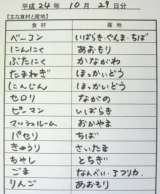 平成 24年 10月 29日分
【主な食材/産地】
食材 産地
ベーコン いばらき・ぐんま・ちば
にんにく あおもり
ぶたにく かながわ
たまねぎ ほっかいどう
にんじん ほっかいどう
セロリ ながの
ピーマン いばらき
マッシュルーム おかやま
パセリ ちば
きゅうり さいたま
もやし とちぎ
ごま なんべい・アフリカ
りんご あおもり